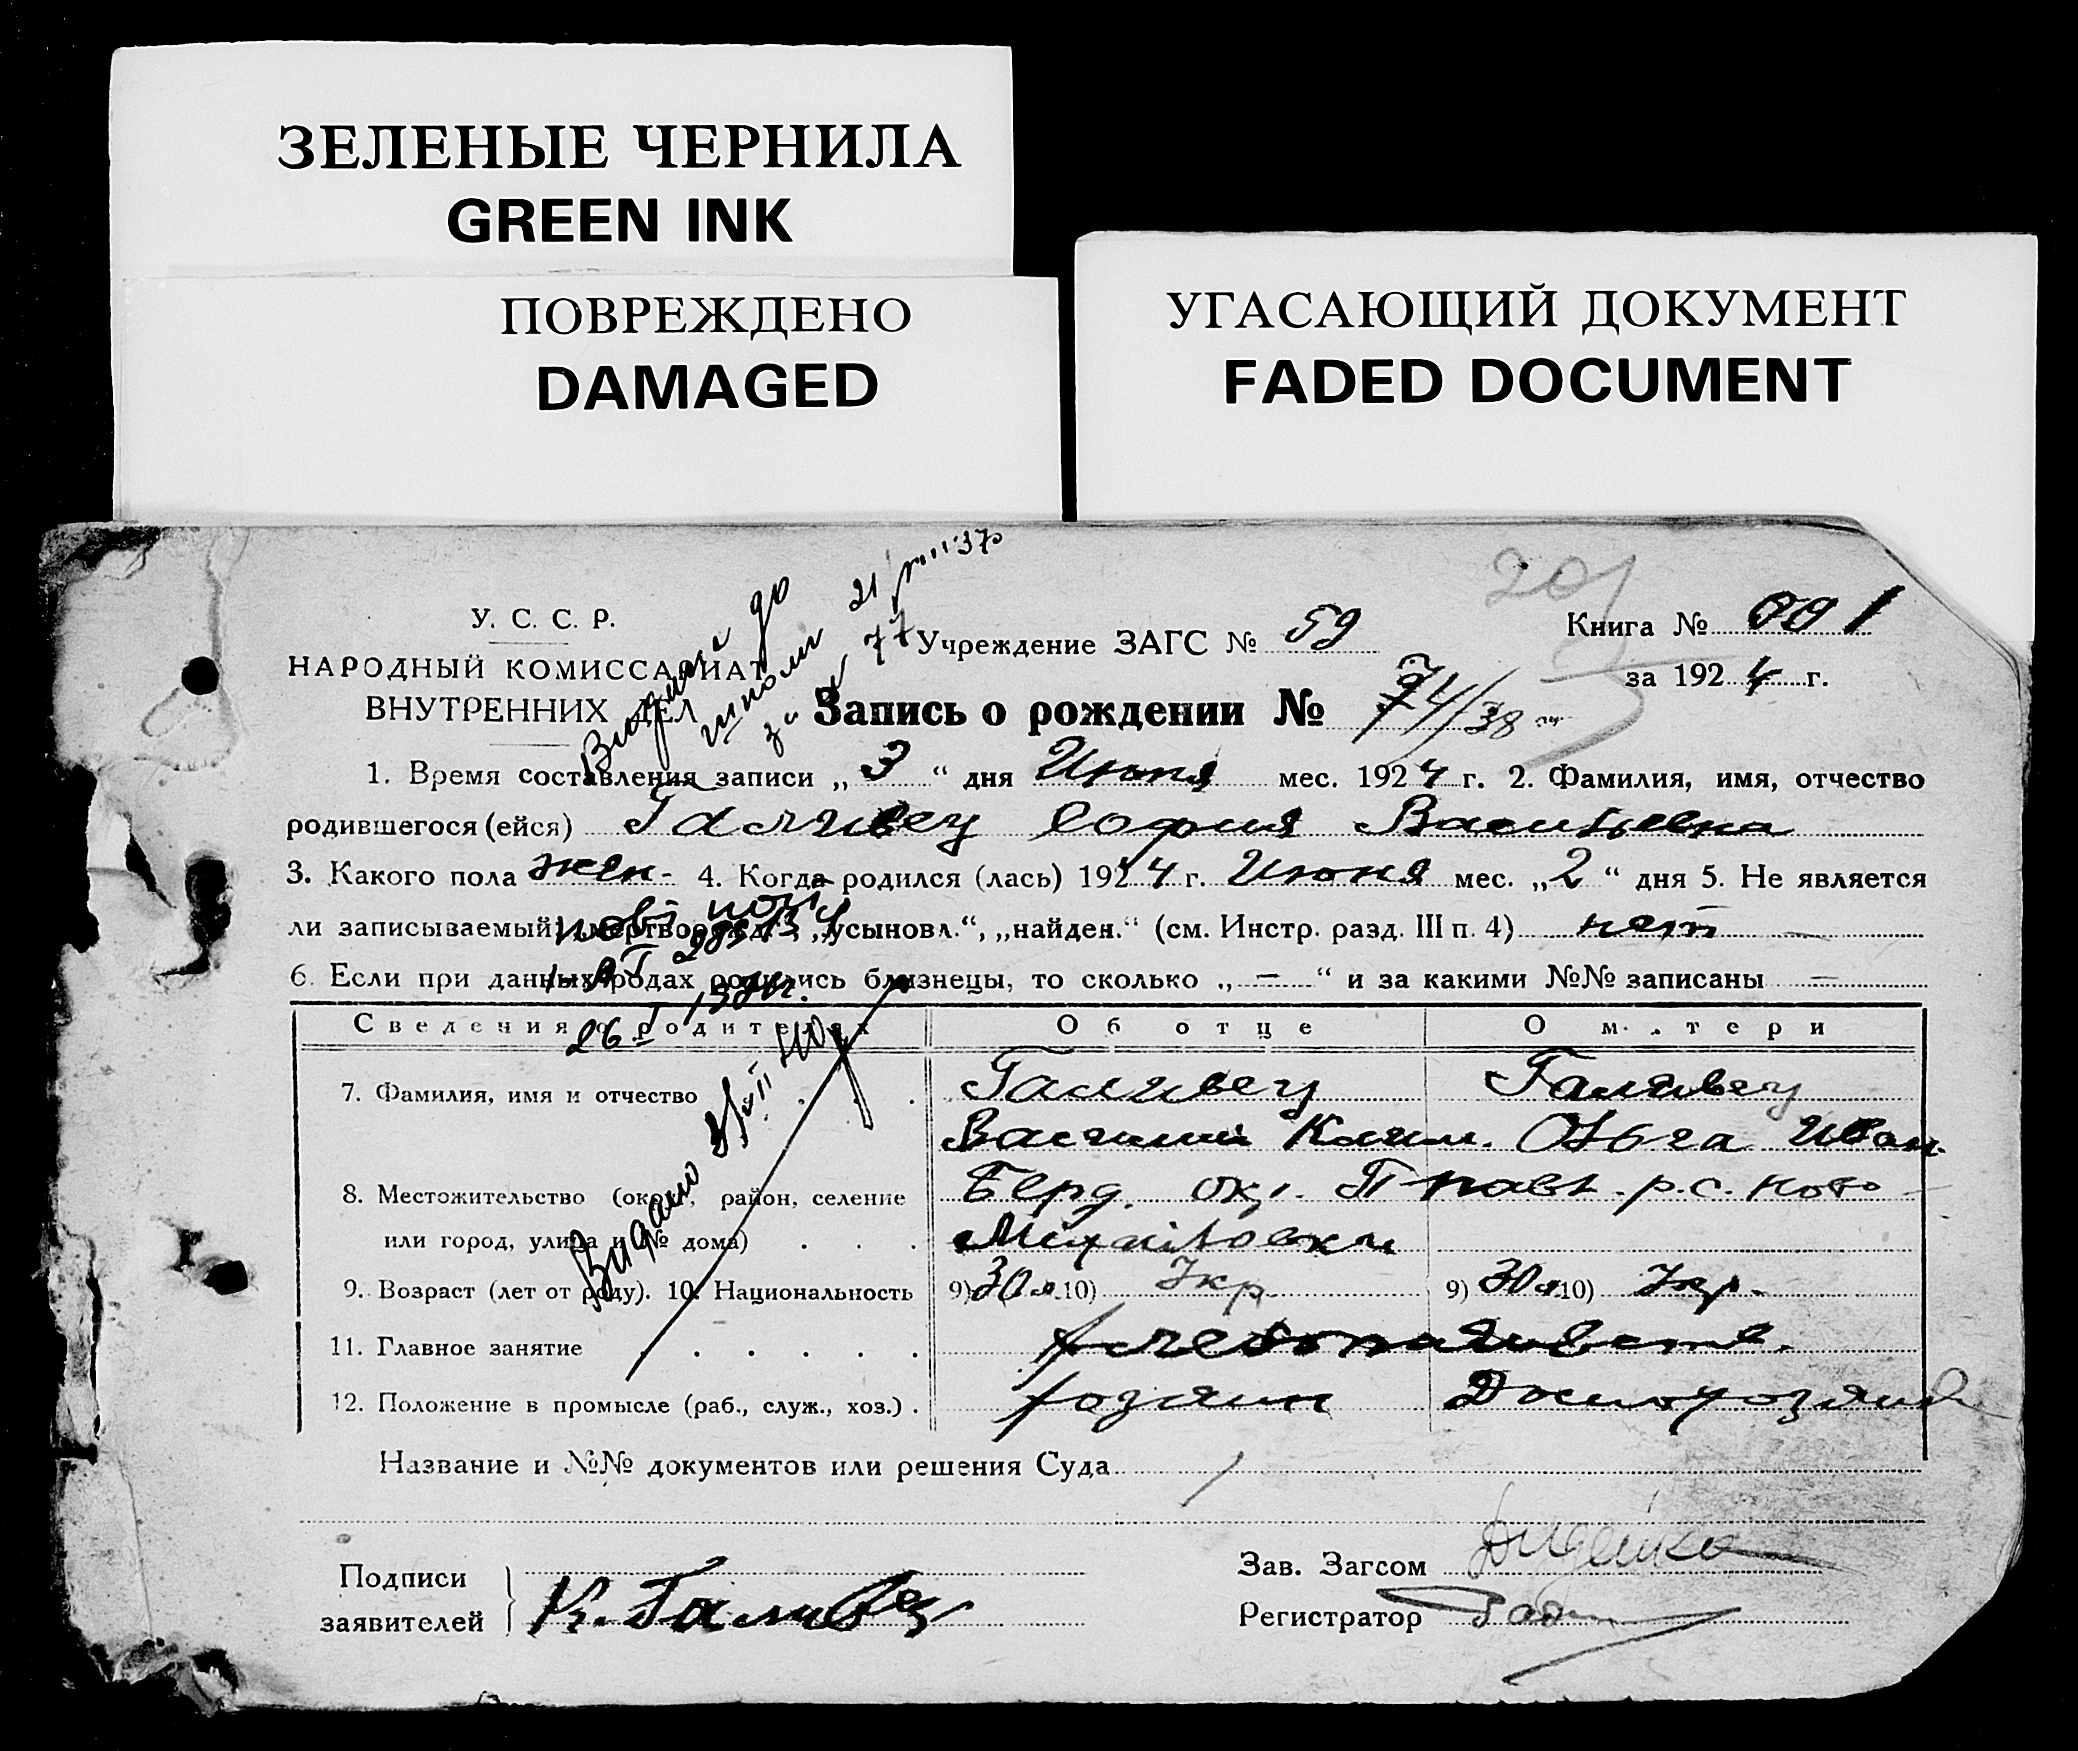 ЗЕЛЕНЫЕ ЧЕРНИЛА
GREEN INK
ПОВРЕЖДЕНО
DAMAGED
УГАСАЮЩИЙ ДОКУМЕНТ
FADED DOCUMENT
У. С. С. Р.
НАРОДНЫЙ КОМИССАРИАТ
ВНУТРЕННИХ ДЕЛ
201
Учреждение ЗАГС № 59
Книга № 001
за 1924 г.
Запись о рождении № 74/38
1. Время составления записи „3“ дня Июня мес. 1924 г. 2. Фамилия, имя, отчество
родившегося (ейся) Галивец София Васильевна
3. Какого пола жен. 4. Когда родился (лась) 1924 г. Июня мес. „2“ дня 5. Не является
ли записываемый: „мертворожд.“, „усыновл.“, „найден.“ (см. Инстр. разд. III п. 4) нет —
6. Если при данных родах родились близнецы, то сколько „—“ и за какими №№ записаны —
Сведения о родителях Об отце О матери
7. Фамилия, имя и отчество Галивец Галивец
Ольга Иван.
8. Местожительство (округ, район, селение Берд. окр. р. с. Ново-
или город, улица и № дома) Михайловки
9. Возраст (лет от роду). 10. Национальность 9) 30 л. 10) Укр. 9) 30 л. 10) Укр.
11. Главное занятие хлебопашество.
12. Положение в промысле (раб., служ., хоз.) хозяин Домохозяйка
Название и №№ документов или решения Суда
Подписи
заявителей К. Галивец
Зав. Загсом
Регистратор
Видано